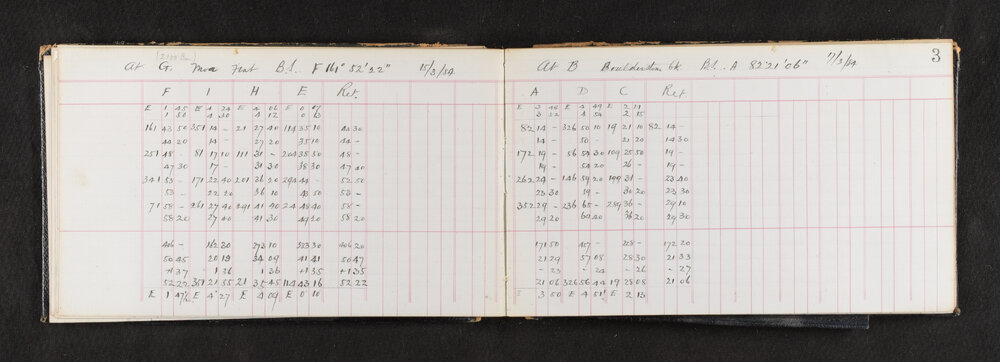 At G. Moa Flat B.S. F 161° 52' 22" 15/3/54
F I H E Ret.
E 1 45 E 4 24 E 4 06 E 0 07
1 50 4 30 4 12 0 13
161 43 50 351 14 - 21 27 40 114 35 10 43 30
44 20 14 - 27 20 35 10 44 -
251 48 - 81 17 10 111 31 - 204 38 50 48 -
47 30 17 - 31 30 38 30 47 40
341 53 - 171 22 40 201 36 20 294 44 - 52 50
53 - 22 20 36 10 43 50 53 -
71 58 - 261 27 40 291 41 40 24 48 40 58 -
58 20 27 40 41 30 49 20 58 20
406 - 162 30 273 10 333 30 406 20
50 45 20 19 34 09 41 41 50 47
+1 37 1 36 1 36 +1 35 +1 35
52 22 351 21 55 21 35 45 114 43 16 52 22
E 1 47½ E 4 27 E 4 09 E 0 10
At B Boulderstone bk B.S. A 82° 21' 06" 17/3/54 3
A D C Ret
E 3 48 E 4 49 E 2 11
3 52 4 54 2 15
82 14 - 326 50 10 19 21 10 82 14 -
14 - 50 - 21 20 14 30
172 19 - 56 54 30 109 25 50 19 -
19 - 54 20 26 - 19 -
262 24 - 146 59 20 199 31 - 23 40
23 30 59 - 30 20 23 30
352 29 - 236 65 - 289 36 - 29 10
29 20 64 40 36 20 29 30
171 50 457 - 228 - 172 20
21 29 57 08 28 30 21 33
- 23 - 24 - 26 - 27
21 06 326 56 44 19 28 08 21 06
E 3 50 E 4 51½ E 2 13